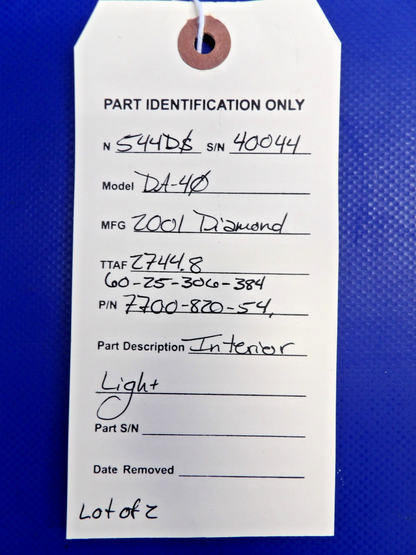 PART IDENTIFICATION ONLY
N 544DS S/N 40044
Model DA-40
MFG 2001 Diamond
TTAF 2744.8
60-25-306-384
P/N 7700-820-54,
Part Description Interior
Light
Part S/N
Date Removed
Lot of 2